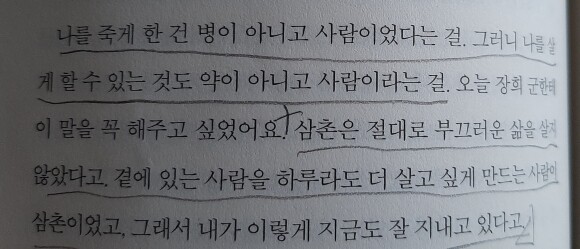 나를 죽게 한 건 병이 아니고 사람이었다는 걸. 그러니 나를 살
게 할 수 있는 것도 약이 아니고 사람이라는 걸. 오늘 장희 군한테
이 말을 꼭 해주고 싶었어요. 삼촌은 절대로 부끄러운 삶을 살지
않았다고. 곁에 있는 사람을 하루라도 더 살고 싶게 만드는 사람이
삼촌이었고, 그래서 내가 이렇게 지금도 잘 지내고 있다고.